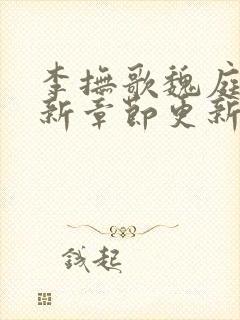 李撫歌魏庭
新章節更新
錢起